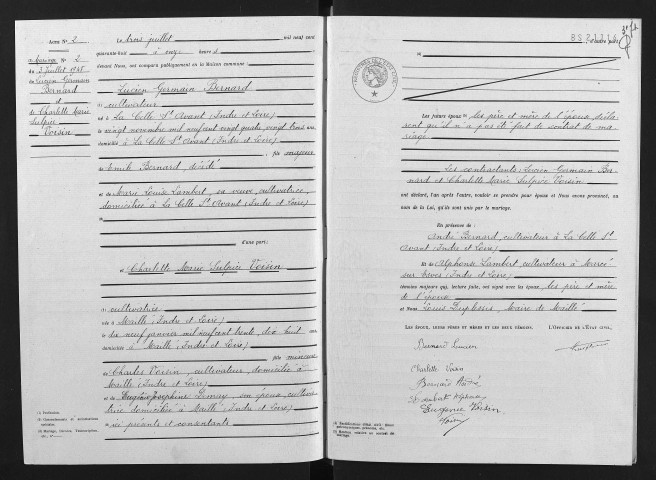 Acte N° 2
Mariage N° 2
du 3 Juillet 1948
de Lucien Germain
Bernard
et
de Charlotte Marie
Sulpice
Voisin
Le trois juillet mil neuf cent
quarante huit à onze heures
devant Nous, ont comparu publiquement en la Maison commune :
Lucien Germain Bernard
(1) cultivateur
né à La Celle St Avant (Indre et Loire)
le vingt novembre mil neuf cent vingt quatre, vingt trois ans
domicilié à La Celle St Avant (Indre et Loire)
fils majeur
de Emile Bernard, décédé
et de Marie Louise Lambert, sa veuve, cultivatrice,
domiciliée à La Celle St Avant (Indre et Loire)
d'une part;
et Charlotte Marie Sulpice Voisin
(1) cultivatrice
née à Maillé (Indre et Loire)
le dix neuf janvier mil neuf cent trente, dix huit ans
domiciliée à Maillé (Indre et Loire)
fille mineure
de Charles Voisin, cultivateur, domicilié à
Maillé (Indre et Loire)
et de Eugénie Joséphine
son épouse, cultiva
trice domiciliée à Maillé (Indre et Loire)
ici présents et consentants
(1) Profession.
Les futurs époux les père et mère de l'épouse, décla
rent qu'il n'a pas été fait de contrat de ma
riage
Les contractants Lucien Germain Ber
nard et Charlotte Marie Sulpice Voisin
ont déclaré, l'un après l'autre, vouloir se prendre pour époux et Nous avons prononcé, au
nom de la Loi, qu'ils sont unis par le mariage.
En présence de :
André Bernard, cultivateur à La Celle St
Avant (Indre et Loire)
et de Alphonse Lambert, cultivateur à
sur Esves (Indre et Loire)
témoins majeurs qui, lecture faite, ont signé avec les époux, les père et mère
de l'épouse
et Nous Louis Duplessis, Maire de Maillé
LES ÉPOUX, LEURS PÈRES ET MÈRES ET LES DEUX TÉMOINS.
L'OFFICIER DE L'ÉTAT CIVIL,
Bernard Lucien
Charlotte Voisin
Bernard André
Lambert Alphonse
Eugénie Voisin
Voisin